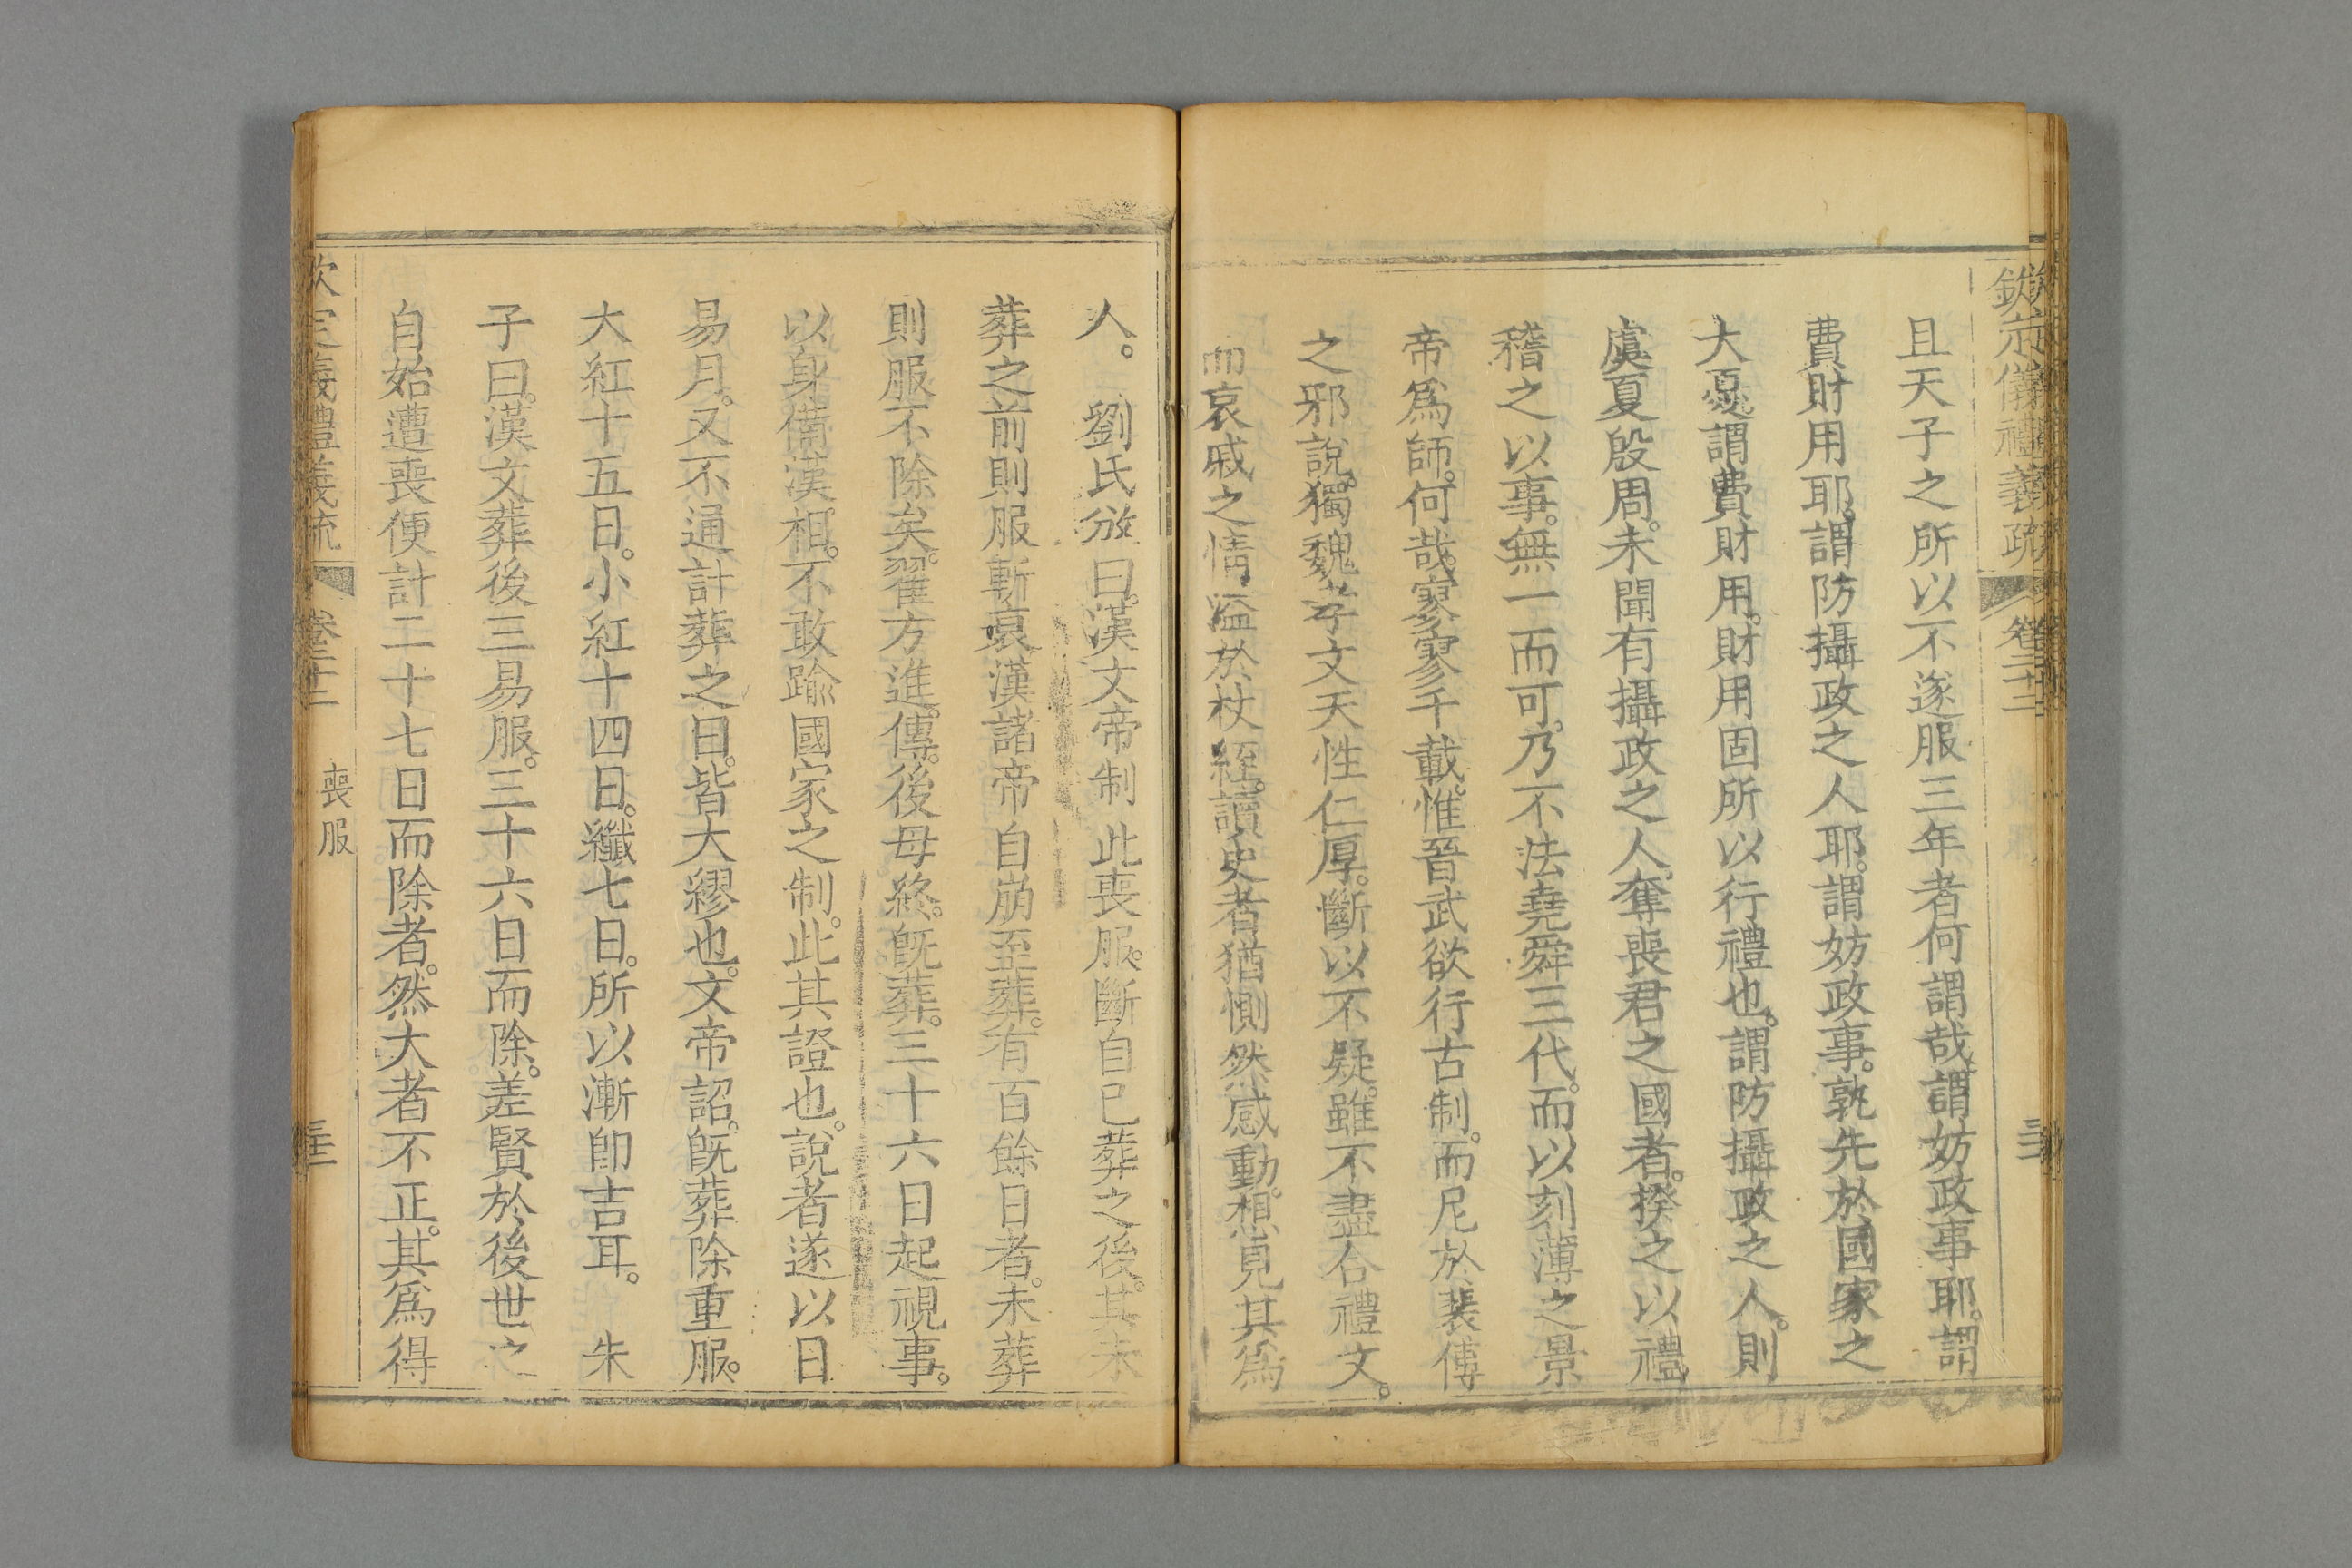 欽定儀禮義疏 卷二十二
且天子之所以不遂服三年者何謂哉謂妨政事耶。謂
費財用耶。謂防攝政之人耶。謂妨政事。孰先於國家之
大憂謂費財用。財用固所以行禮也。謂防攝政之人。則
虞夏殷周。未聞有攝政之人奪喪君之國者。揆之以禮
稽之以事。無一而可。乃不法堯舜三代。而以刻薄之景
帝爲師。何哉。寥寥千載。惟晉武欲行古制。而尼於裴傅
之邪說。獨魏孝文天性仁厚。斷以不疑。雖不盡合禮文。
而哀戚之情溢於杖絰。讀史者猶惻然感動。想見其爲
人。 劉氏攽曰。漢文帝制此喪服。斷自已葬之後。其未
葬之前則服斬衰漢諸帝自崩至葬。有百餘日者。未葬
則服不除矣。翟方進傳。後母終。旣葬。三十六日起視事。
以身備漢相。不敢踰國家之制。此其證也。說者遂以日
易月。又不通計葬之日。皆大繆也。文帝詔。旣葬除重服。
大紅十五日。小紅十四日。纖七日。所以漸卽吉耳。 朱
子曰。漢文葬後三易服。三十六日而除。差賢於後世之
自始遭喪便計二十七日而除者。然大者不正。其爲得
欽定義禮義疏 卷二十二 喪服